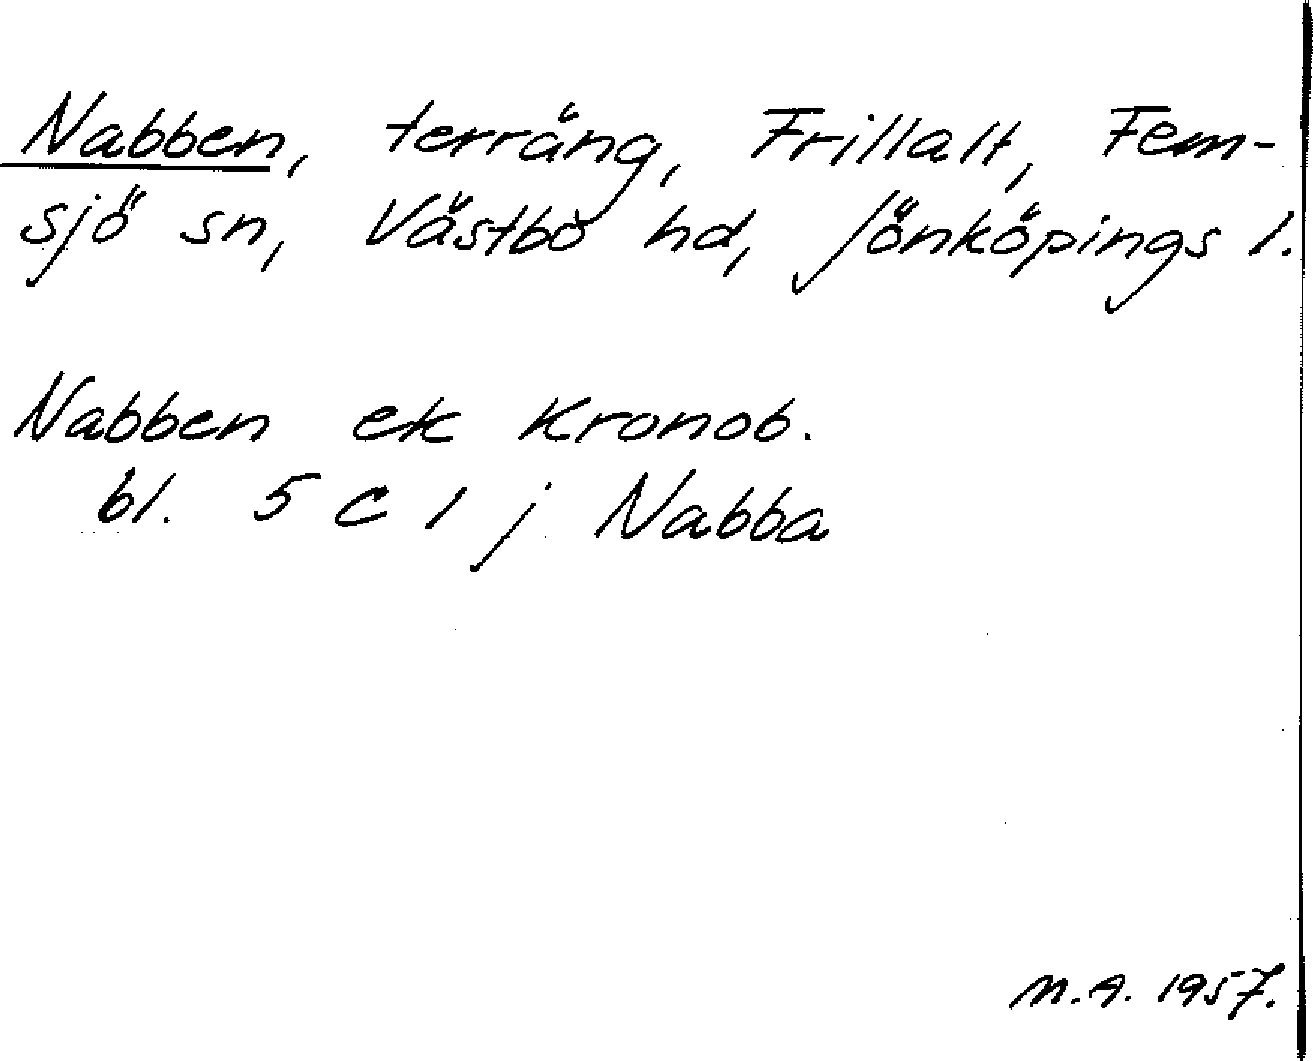 Nabben, terräng, Frillalt, Fem-
sjö sn, Västbo hd, Jönköpings l.
Nabben ek Kronob.
bl. 5 C 1 j Nabba
M.A. 1957.